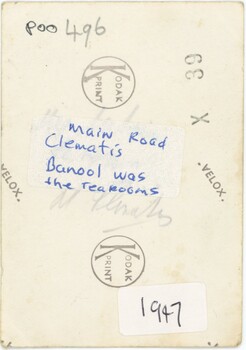 P00496
KODAK
K
PRINT
X 39
VELOX.
main Road
Clematis
Banool was
the tearooms
VELOX.
KODAK
K
PRINT
1947